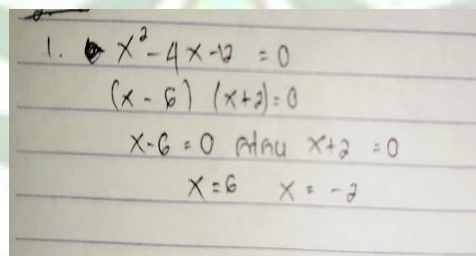 1. x² - 4x - 12 = 0
(x - 6) (x + 2) = 0
x - 6 = 0 atau x + 2 = 0
x = 6 x = -2